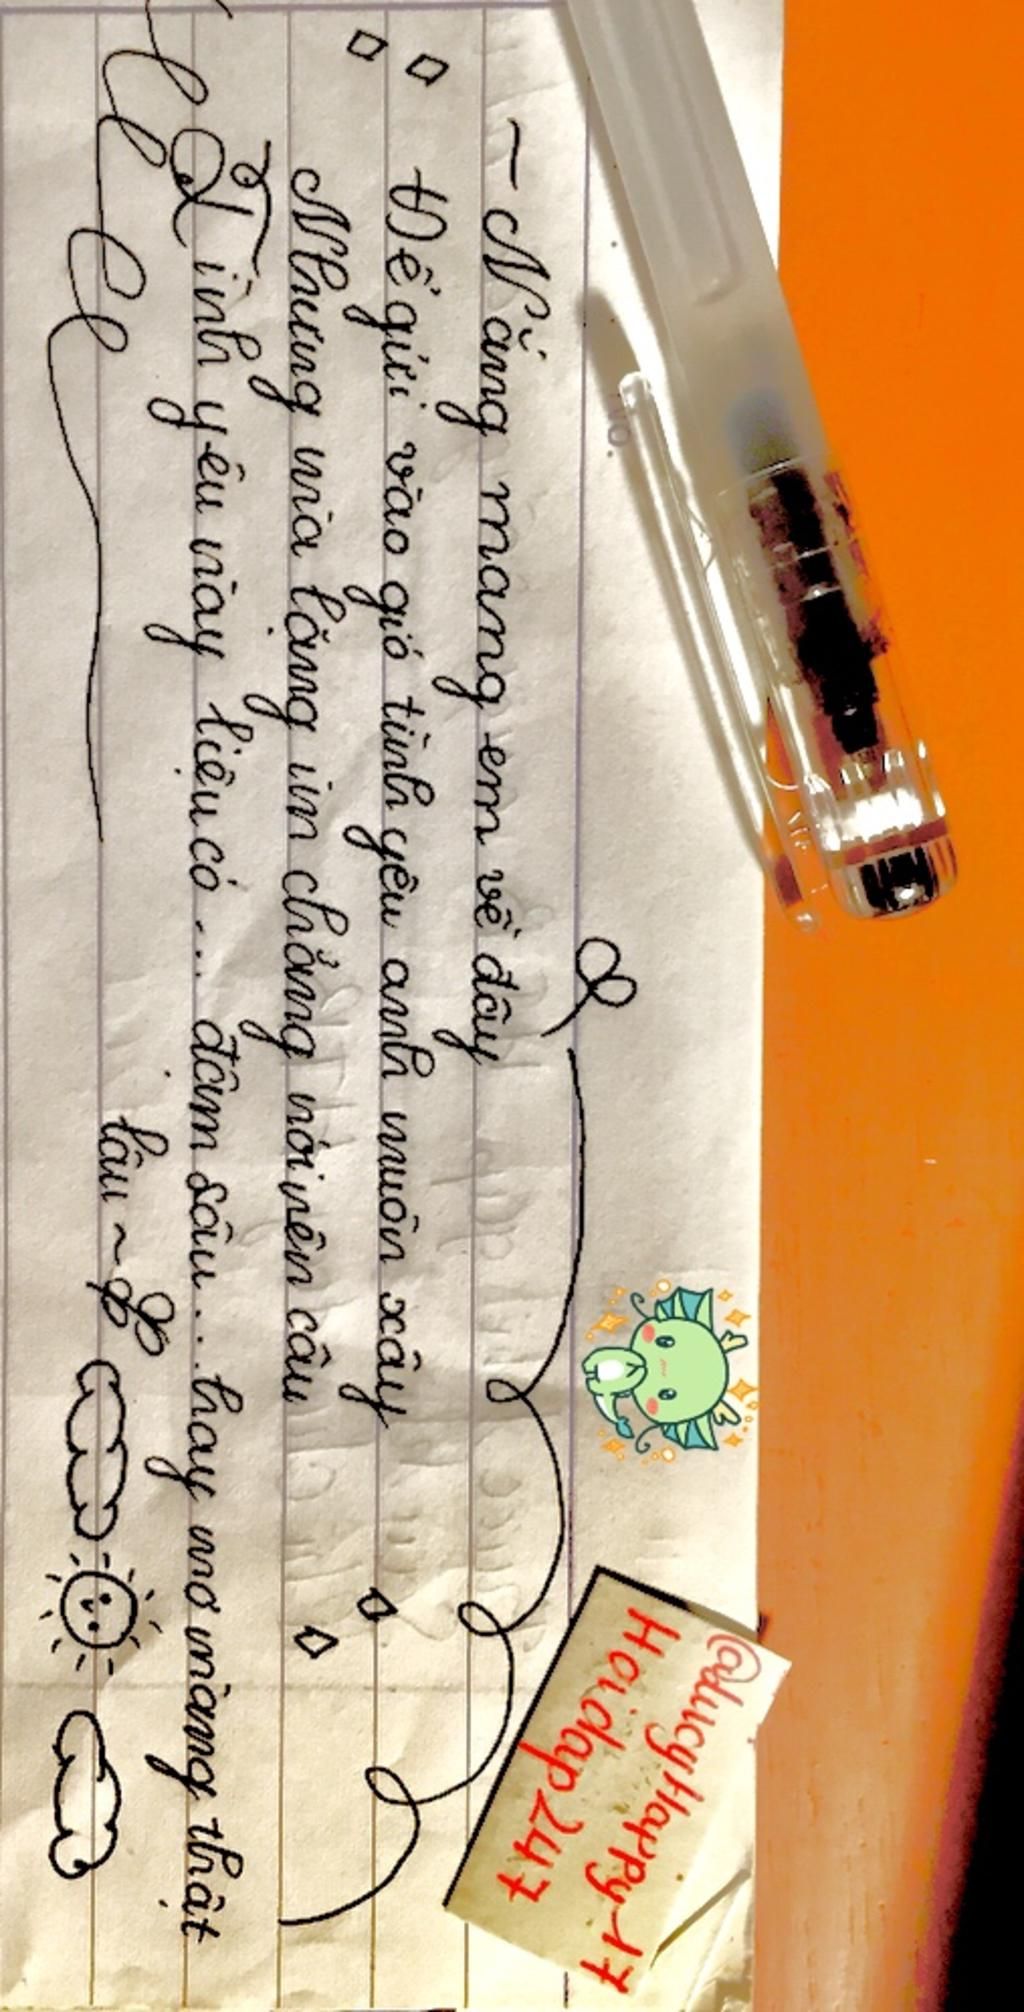 ~ Nắng mang em về đây
Để gửi vào gió tình yêu anh muốn xây
Nhưng mà lặng in chẳng nói nên câu
Tình yêu này liệu có... đậm sâu... hay mơ màng thật
lâu ~
@LucyHappy17
Hoidap247